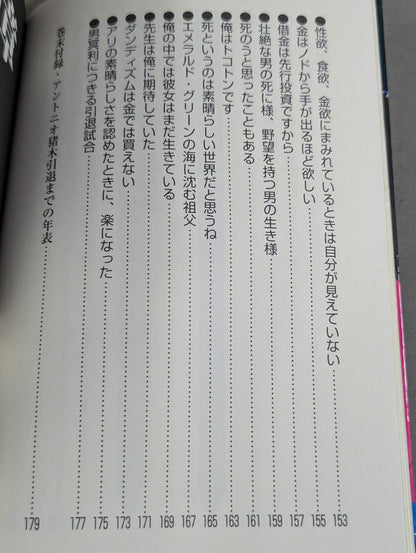 ●性欲、食欲、金欲にまみれているときは自分が見えていない……153
●金はノドから手が出るほど欲しい……155
●借金は先行投資ですから……157
●壮絶な男の死に様、野望を持つ男の生き様……159
●死のうと思ったこともある……161
●俺はトコトンです……163
●死というのは素晴らしい世界だと思うね……165
●エメラルド・グリーンの海に沈む祖父……167
●俺の中では彼女はまだ生きている……169
●先生は俺に期待していた……171
●ダンディズムは金では買えない……173
●アリの素晴らしさを認めたときに、楽になった……175
●男冥利につきる引退試合……177
巻末付録・アントニオ猪木引退までの年表……179